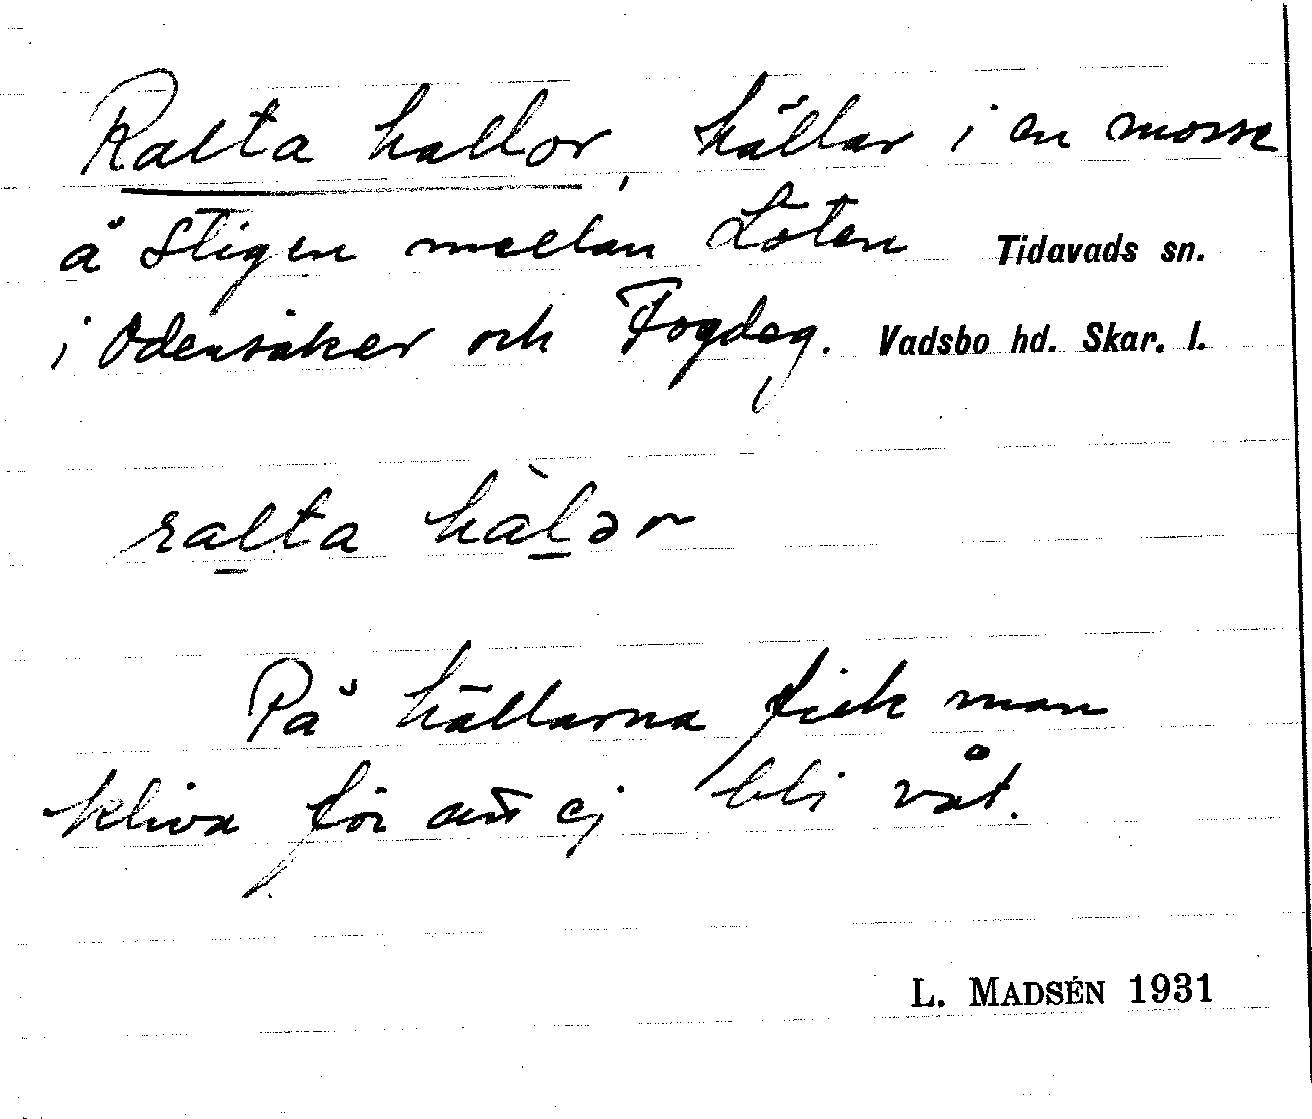 Ralta hallor, hällar i en mosse
å stigen mellan Löten Tidavads sn.
i Odensåker och Fogdeg. Vadsbo hd. Skar. l.
ralta hàlər
På hällarna fick man
kliva för att ej bli våt.
L. MADSÉN 1931